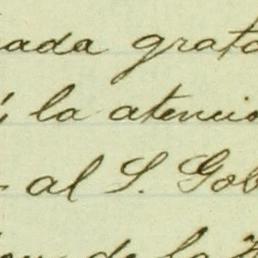 ada grata
la atencio
al S. Gob
de la